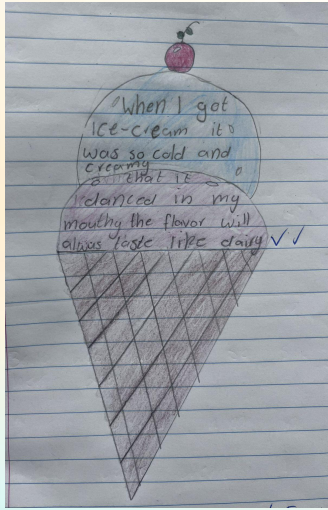 "When I got
ice-cream it
was so cold and
creamy
that it
danced in my
mouthy the flavor will
always taste like dairy